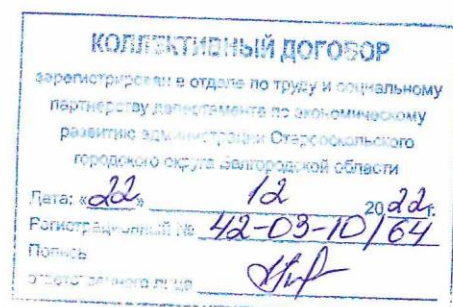 КОЛЛЕКТИВНЫЙ ДОГОВОР
зарегистрирован в отделе по труду и социальному
партнерству департамента по экономическому
развитию администрации Старооскольского
городского округа Белгородской области
Дата: «22» 12 2022г.
Регистрационный № 42-03-10/64
Подпись
ответственного лица